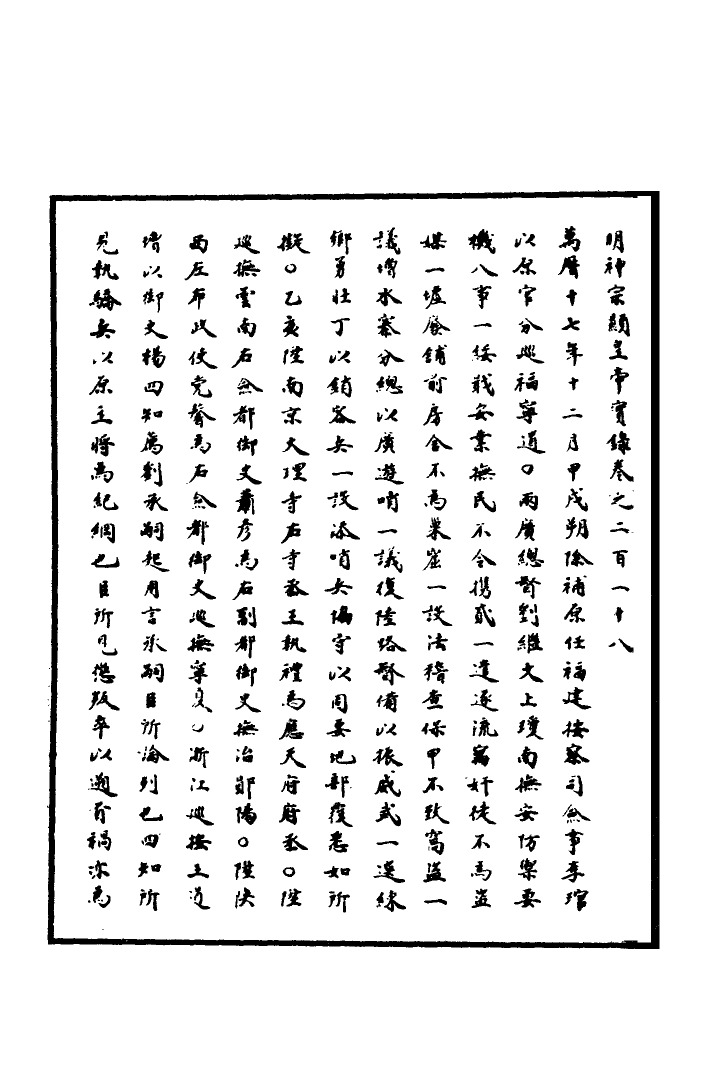 明神宗顯皇帝實錄卷之二百一十八
萬曆十七年十二月甲戌朔除補原任福建按察司僉事李琯
以原官分巡福寧道○兩廣總督劉繼文上瓊南撫安防禦要
機八事一綏戢安業撫民不令攜貳一遣逐流寓奸徒不為盜
媒一墟廢鋪前房舍不為巢窟一設法稽查保甲不致窩盜一
議增水寨分總以廣遊哨一議復陸路督備以振威武一選練
鄉勇壯丁以銷客兵一設添哨兵協守以固要地部覆悉如所
擬○乙亥陞南京大理寺右寺丞王執禮為應天府府丞○陞
巡撫雲南右僉都御史蕭彥為右副都御史撫治鄖陽○陞陝
西左布政使党馨為右僉都御史巡撫寧夏○浙江巡按王道
增以御史楊四知薦劉承嗣起用言承嗣臣所論列也四知所
見執驕兵以原主將為紀綱也臣所見懲叛卒以遡首禍亦為